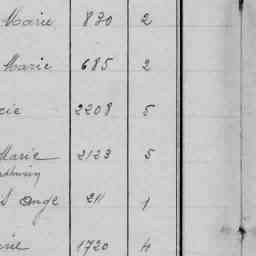 Marie 830 2
Marie 685 2
2208 5
Marie 2123 5
Ange 211 1
1720 4